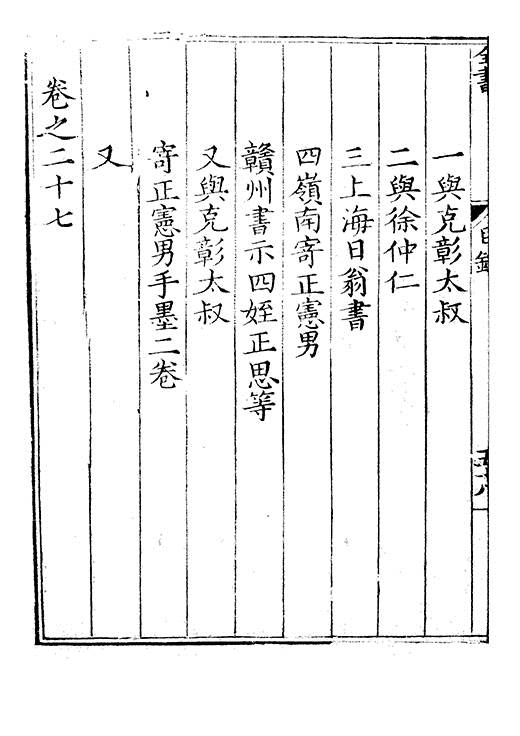 全書
目錄
五十八
一與克彰太叔
二與徐仲仁
三上海日翁書
四嶺南寄正憲男
贛州書示四姪正思等
又與克彰太叔
寄正憲男手墨二卷
又
卷之二十七